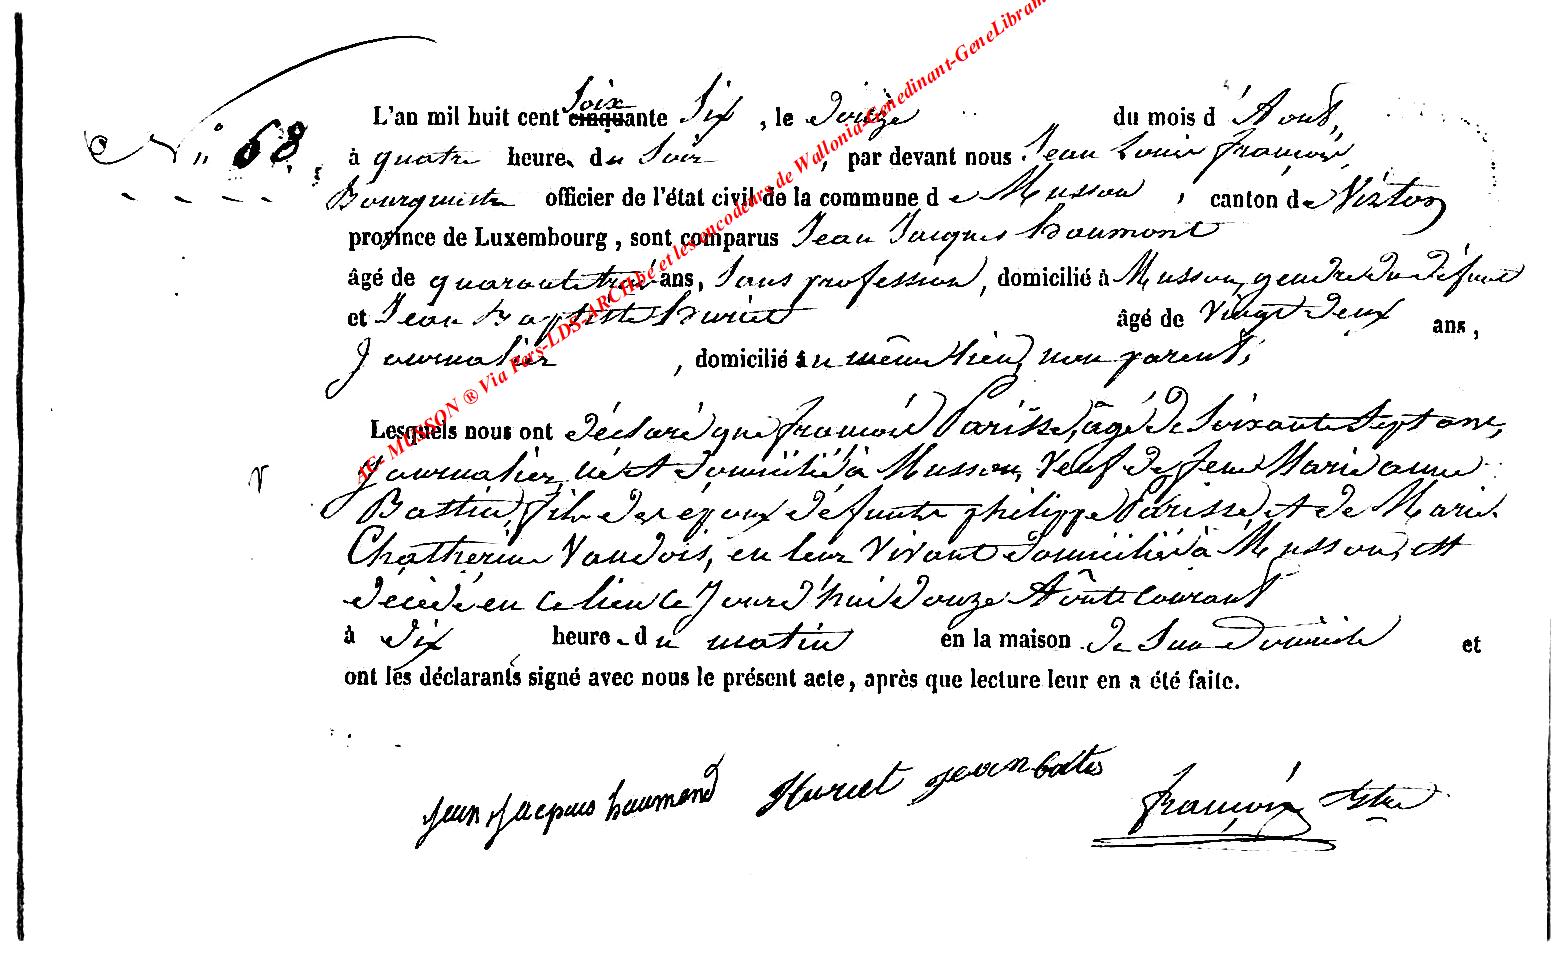 N° 68
L'an mil huit cent soixante six, le Douze du mois d'Août,
à quatre heures du Soir, par devant nous Jean Louis François,
Bourgmestre officier de l'état civil de la commune de Musson, canton de Virton
province de Luxembourg, sont comparus Jean Jacques Haumont
âgé de quarante trois ans, Sans profession, domicilié à Musson, gendre du défunt
et Jean Baptiste Huriet âgé de Vingt Deux ans,
Journalier, domicilié au même lieu, non parent,
Lesquels nous ont déclaré que françois Parisse, âgé de Soixante Sept ans,
Journalier, né et domicilié à Musson, Veuf de feue Marie anne
Bastin, fils des époux défunts philippe Parisse et de Marie
Chatherine Vaudois, en leur Vivant domiciliés à Musson, est
décédé en ce lieu ce Jourd'hui douze Août courant
à Dix heures du matin en la maison de Son Domicile et
ont les déclarants signé avec nous le présent acte, après que lecture leur en a été faite.
Jean Jacques haumond Huriet Jean batis françois Bstre
AC- MUSSON ® Via Fers-LDS-ARCHbe et les encodeurs de Wallonia-Genedinant-GeneLibram